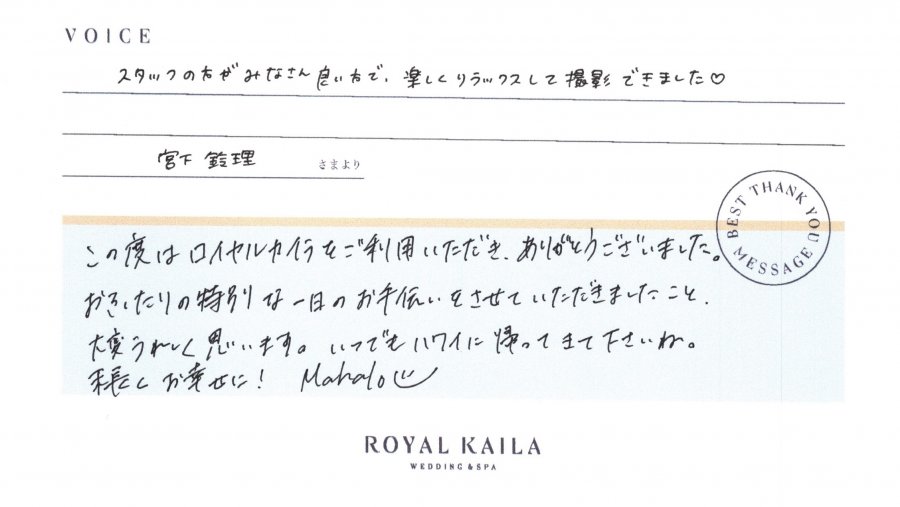 VOICE
スタッフの方がみなさん良い方で、楽しくリラックスして撮影できました♡
宮下 鈴理 さまより
BEST THANK YOU MESSAGE
この度はロイヤルカイラをご利用いただき、ありがとうございました。
おふたりの特別な一日のお手伝いをさせていただきましたこと、
大変うれしく思います。いつでもハワイに帰ってきて下さいね。
末長くお幸せに! Mahalo
ROYAL KAILA
WEDDING & SPA